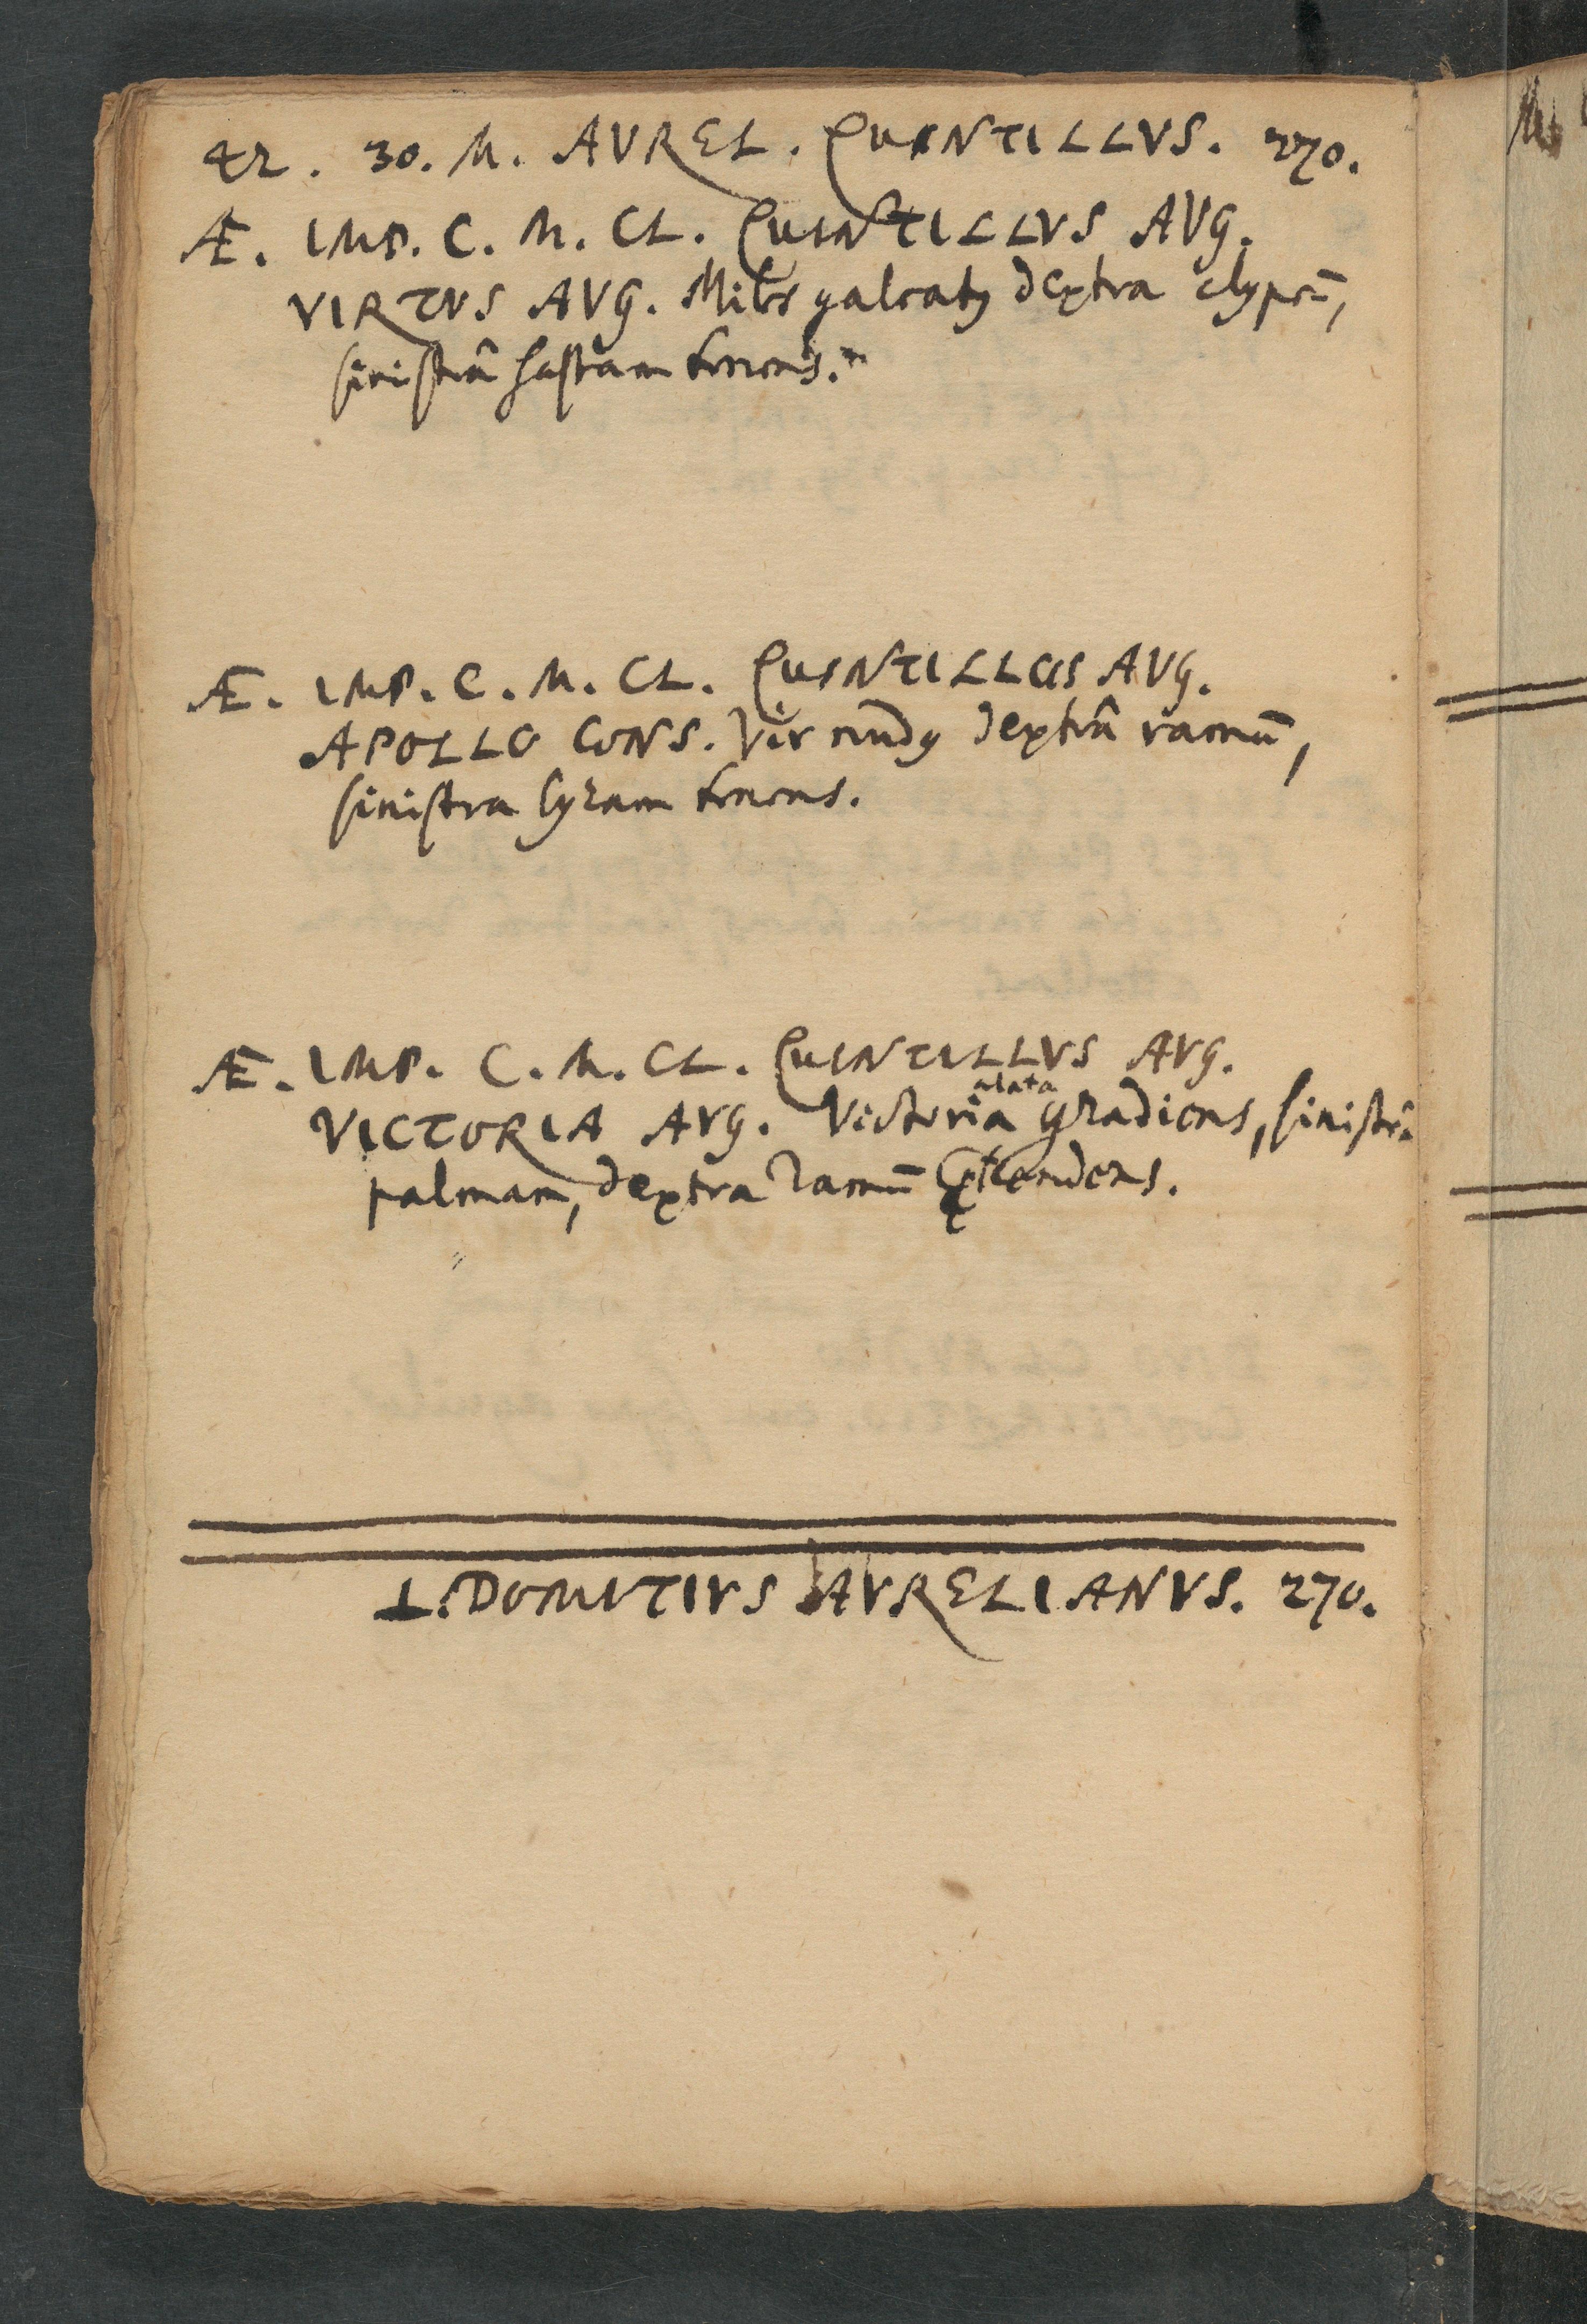 42. 30. M. AVREL. QUINTILLVS. 270.
Æ. IMP. C. M. CL. QUINTILLVS AVG.
VIRTVS AVG. Miles galeatꝰ dextra clypeū,
sinistrâ hastam tenens.
Æ. IMP. C. M. CL. QUINTILLUS AVG.
APOLLO CONS. Vir nudꝰ dextrâ ramū,
sinistra lyram tenens.
Æ. IMP. C. M. CL. QUINTILLVS AVG.
alata
VICTORIA AVG. Victoria gradiens, sinistrâ
palmam, dextra ramū extendens.
L. DOMITIVS AVRELIANVS. 270.